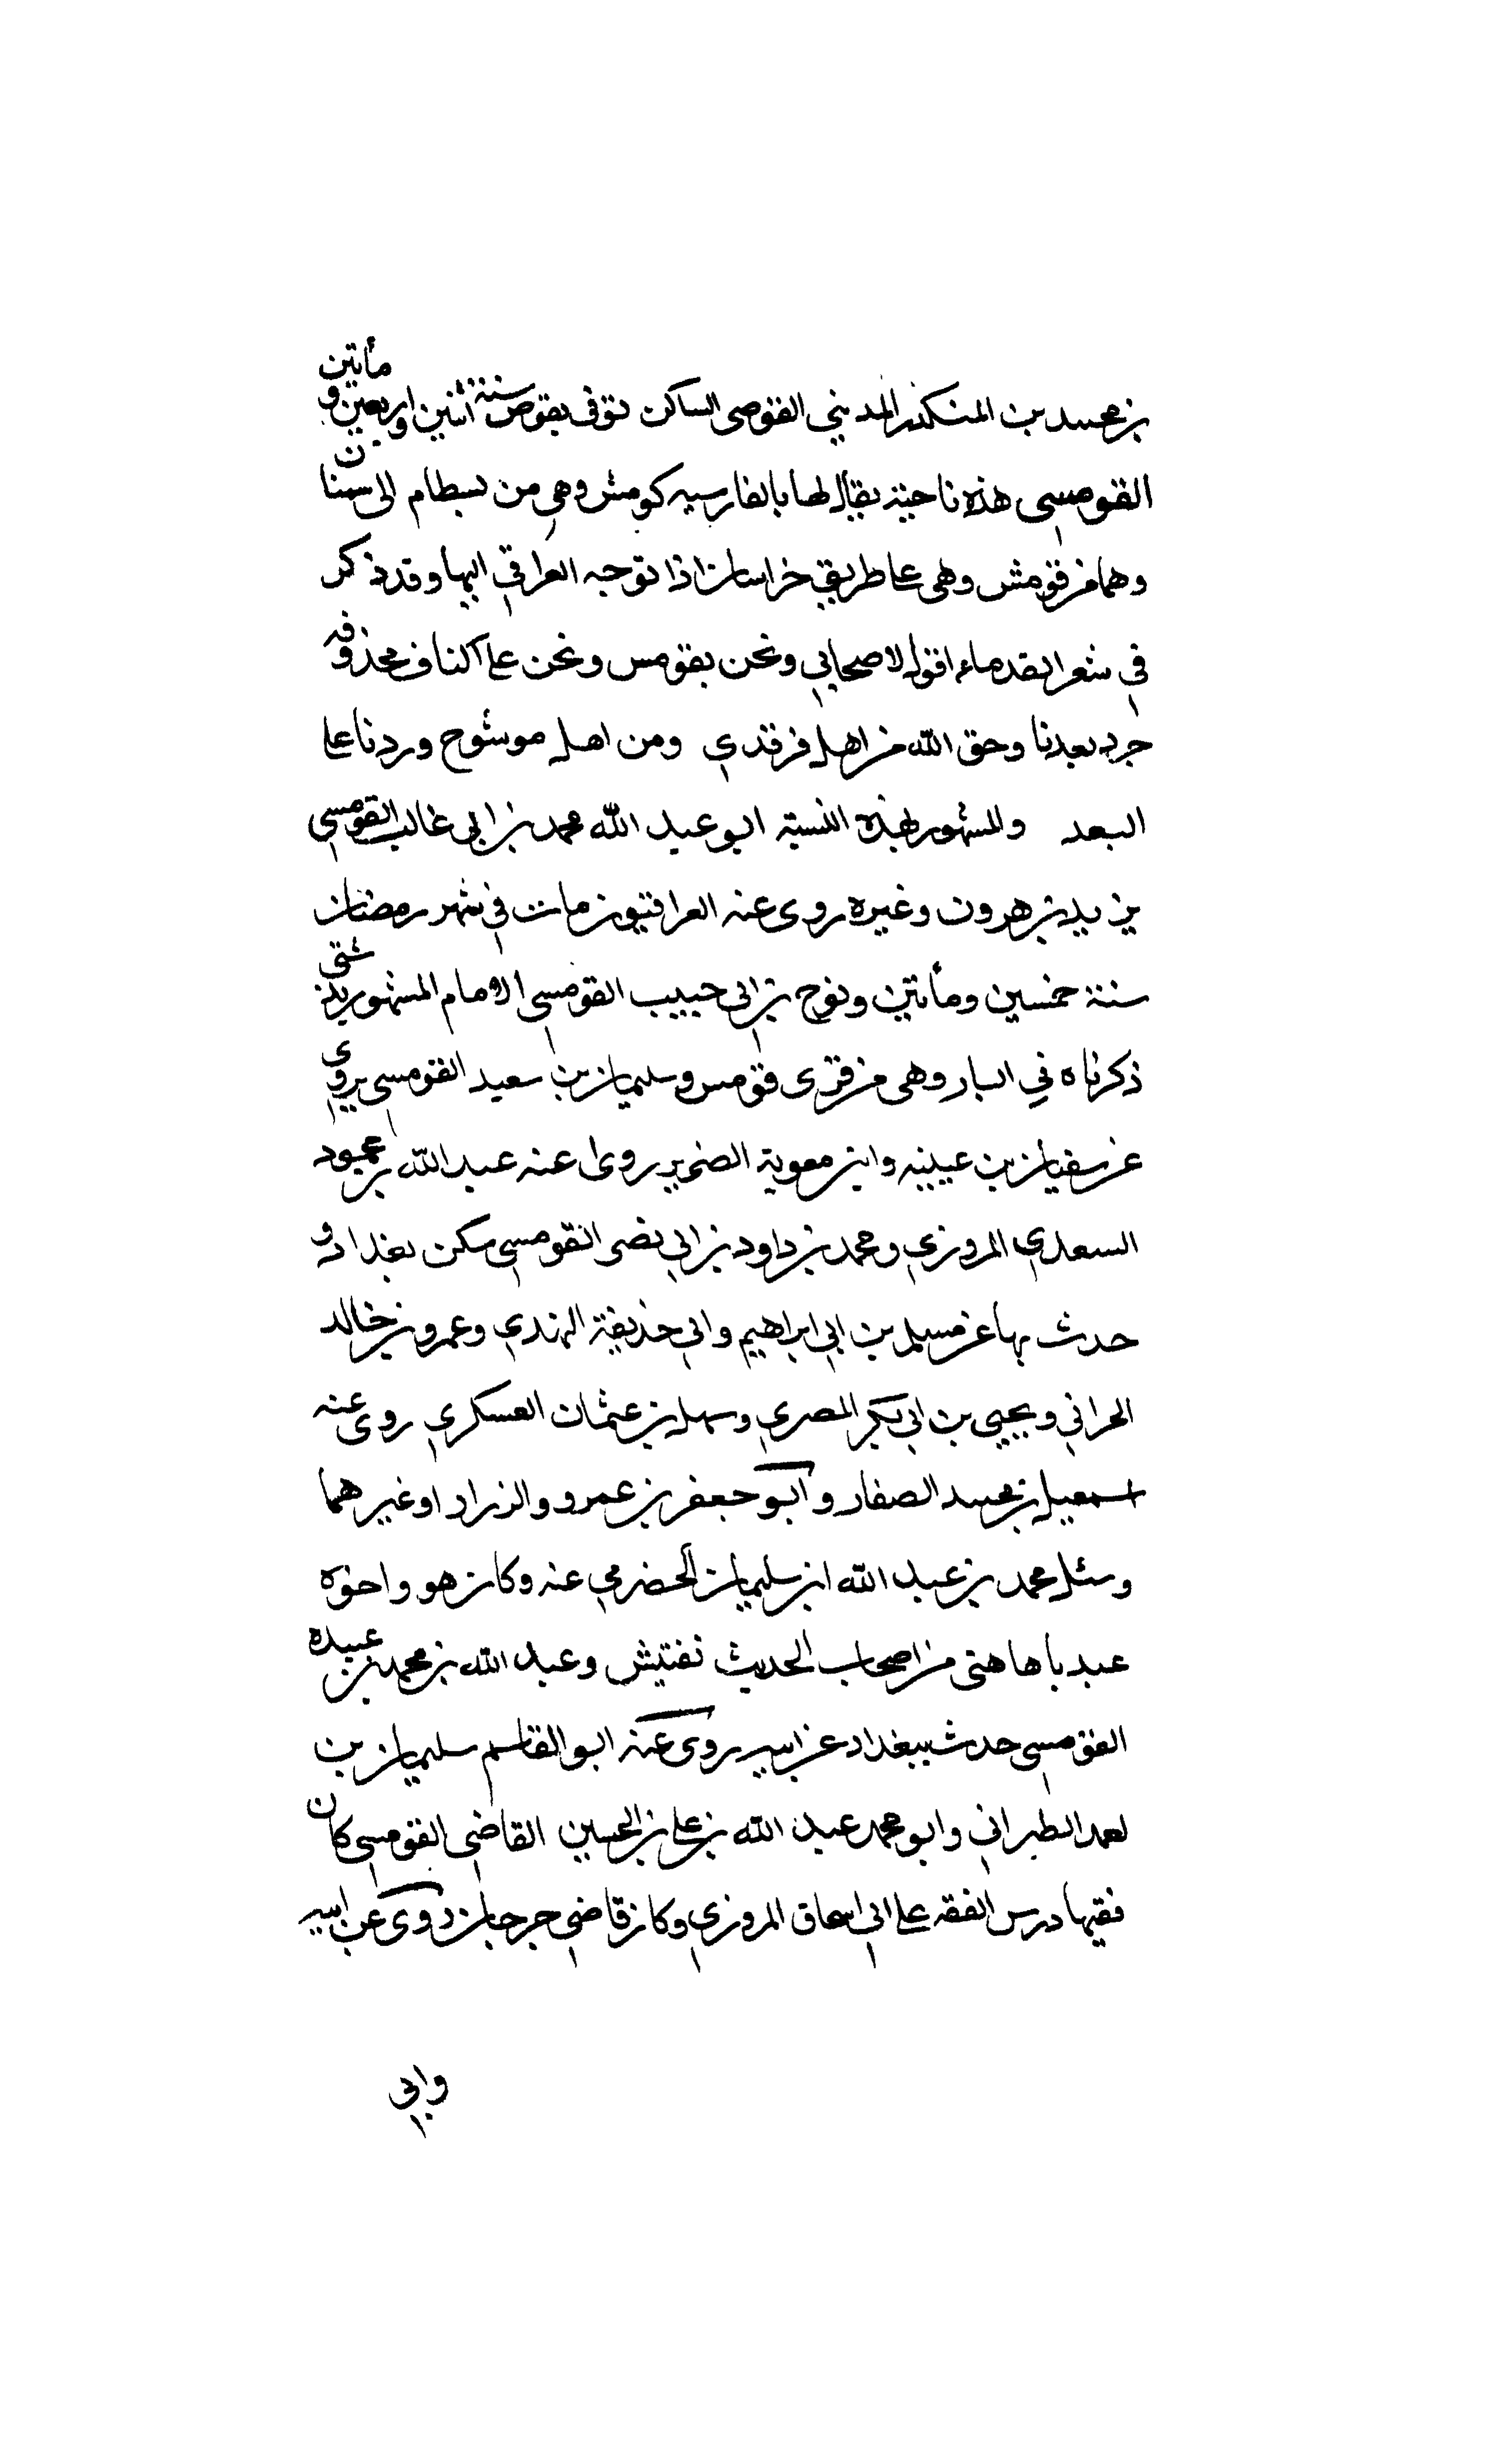 بن محمد بن المنكدر المديني القوصي الساكن توفى بقوص سنة اثنين واربعين و مأتين
القومسي هذه ناحية يقال لها بالفارسيه كومش وهي من بسطام الى سمنان
وهما من قومش وهي على طريق خراسان اذا توجه العراقي اليها وقد ذكر
في شعر القدماء اقول لاصحابي ونحن بقومس ونحن على اكناف محذوفه
جرد بعدنا وحق الله من اهل فرقدي ومن اهل موشوح وردنا على
البعد والمشهور بهذه النسبة ابو عبد الله محمد بن ابي غالب القومسي
يزيد بن هرون وغيره روى عنه العراقيون مات في شهر رمضان
سنة خمسين ومأتين ونوح بن ابي حبيب القومسي الامام المشهور
ذكرناه في البار وهي من قرى قومس وسليمان بن سعيد القومسي يروي
عن سفيان بن عيينه وابن معوية الضرير روى عنه عبد الله بن محمود
السعدي المروزي ومحمد بن داود بن ابي نصر القومسي سكن بغداد و
حدث بها عن مسلم بن ابي ابراهيم وابي حذيفة النهدي وعمرو بن خالد
الحراني ويحيى بن ابي بكير المصري وسهل بن عثمان العسكري روى عنه
اسمعيل بن محمد الصفار وابو جعفر بن عمرو والزراد اوغيرهما
وسئل محمد بن عبد الله ابن سليمان الحضرمي عنه وكان هو واخوه
عبد باهاهنى من اصحاب الحديث نفتيش وعبد الله بن محمد بن عبيده
القومسي حدث ببغداد عن ابيه روى عنه ابو القاسم سليمان بن
لحمد الطبراني وابو محمد عبد الله بن علي بن الحسين القاضي القومسي كان
فقيها درس الفقه على ابي اسحاق المروزي وكان قاضي جرجان روى عن ابيه
وابي